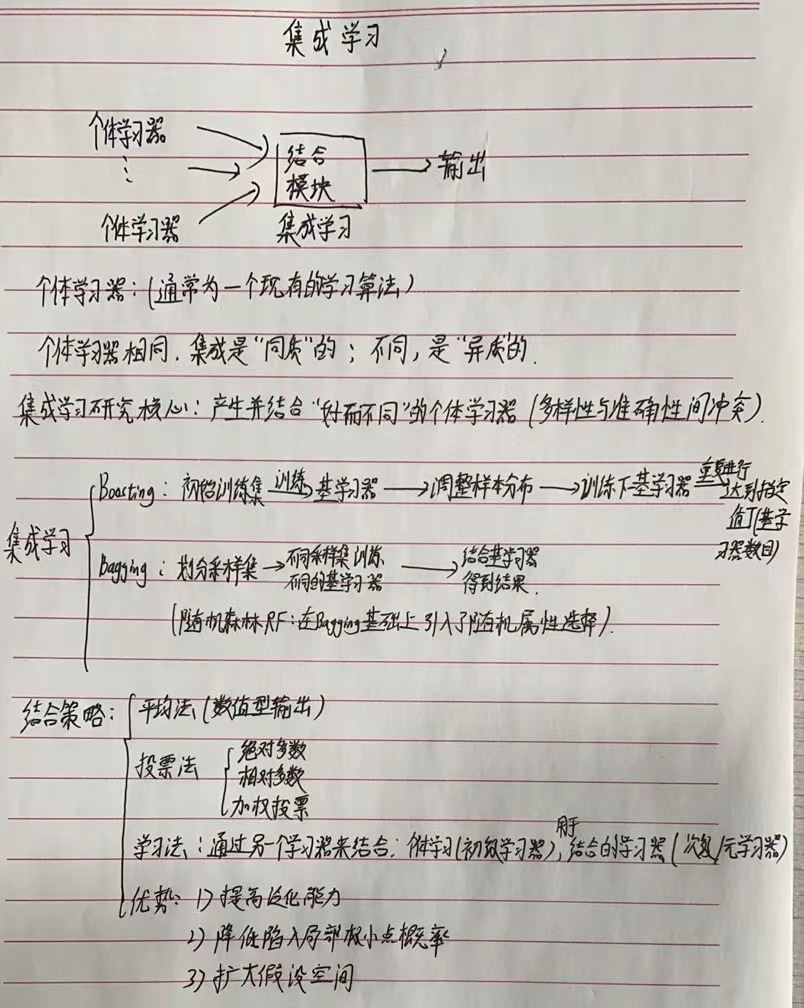 集成学习
个体学习器
⋮
个体学习器
结合
模块
集成学习
输出
个体学习器：(通常为一个现有的学习算法)
个体学习器相同，集成是“同质”的；不同，是“异质”的．
集成学习研究核心：产生并结合“好而不同”的个体学习器 (多样性与准确性间冲突)．
集成学习
Boosting：初始训练集 训练→ 基学习器 → 调整样本分布 → 训练下基学习器 重复进行→
达到指定
值T(基学
习器数目)
Bagging：划分采样集 → 不同采样集训练
不同的基学习器 → 结合基学习器
得到结果．
(随机森林RF：在Bagging基础上引入了随机属性选择)．
结合策略：
平均法 (数值型输出)
投票法
绝对多数
相对多数
加权投票
学习法：通过另一个学习器来结合：个体学习(初级学习器)，用于结合的学习器(次级/元学习器)
优势：1) 提高泛化能力
2) 降低陷入局部极小点概率
3) 扩大假设空间